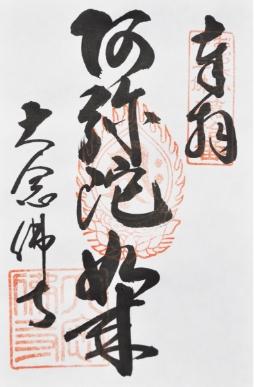 奉拝
阿弥陀如来
大念佛寺